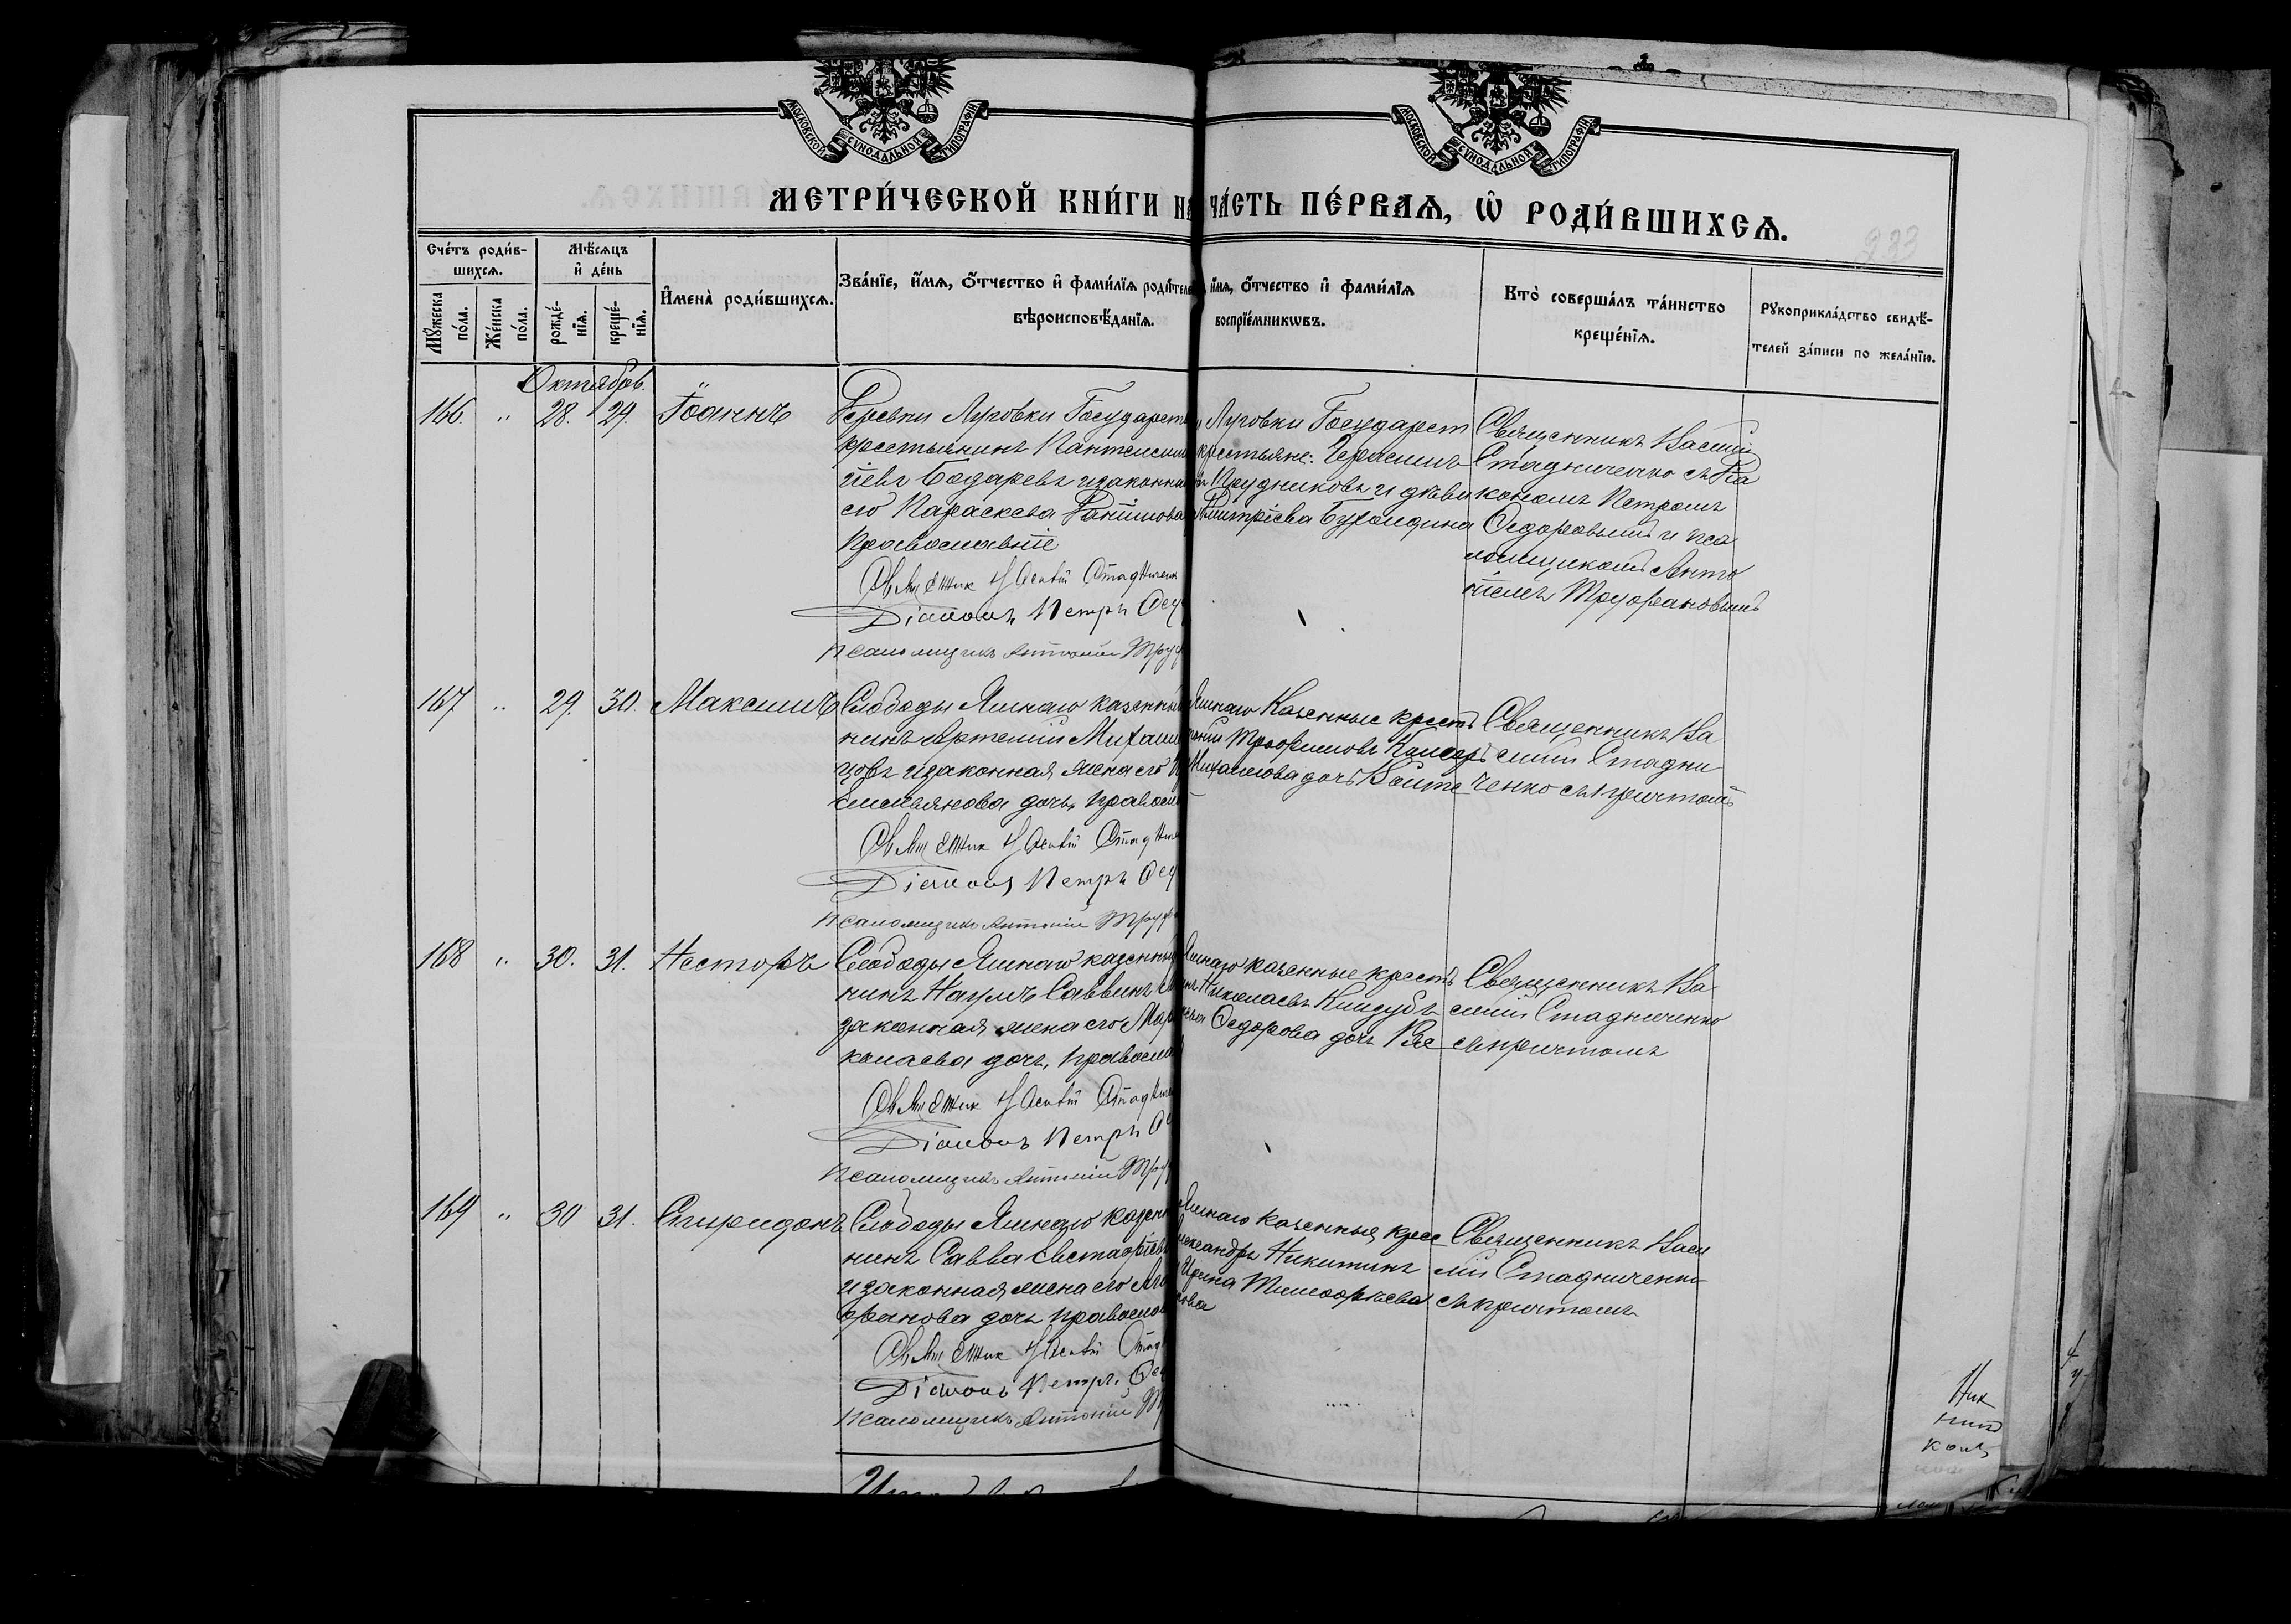 МОСКОВСКОЙ СѴНОДАЛЬНОЙ ТИПОГРАФІИ
МОСКОВСКОЙ СѴНОДАЛЬНОЙ ТИПОГРАФІИ
МЕТРИ́ЧЕСКОЙ КНИ́ГИ НА
ЧА́СТЬ ПЕ́РВАѦ, Ѽ РОДИ́ВШИХСѦ.
233
Сче́тъ роди́в-
шихсѧ.
Мꙋ́жеска по́ла.
Же́нска по́ла.
Мѣ́сѧцъ
и҆ де́нь
рожде́-
нїѧ.
креще́-
нїѧ.
И҆мена̀ роди́вшихсѧ.
Зва́нїе, и҆́мѧ, ѻ҆́тчество и҆ фами́лїѧ роди́теле
вѣроисповѣ́данїѧ.
и҆́мѧ, ѻ҆́тчество и҆ фами́лїѧ
воспрїе́мникѡвъ.
Кто̀ соверша́лъ та́инство
креще́нїѧ.
Рꙋкоприкла́дство свидѣ́-
телей за́писи по жела́нїю.
Октябрь.
166. " 28. 29. Іоаннъ
Деревни Луговки Государств
крестьянинъ Пантелеим
іевъ Бодаревъ и законна
его Параскева
православные
Священник Василій Стадниченк
Діаконъ Петръ Ѳед
Псаломщикъ Антоній Труф
Луговки Государст
крестьяне: Герасимъ
Прудниковъ и дѣви
Дмитріева
Священникъ Васи
Стадниченко съ діа
кономъ Петромъ
Ѳедоровымъ и пса
ломщикомъ Анто
ніемъ Труфановымъ
167 " 29. 30. Максимъ
Слободы Ямнаго казенный
нинъ Артемій Михаил
цовъ и законная жена его
Емельянова дочь, правосл
Священник Василій Стадниче
Діаконъ Петръ Ѳед
Псаломщикъ Антоній Труф
Ямнаго Казенные крест
Трофимовъ
Михайлова дочь
Священникъ Ва
силій Стадни
ченко съ причтомъ
168 " 30. 31. Несторъ
Слободы Ямнаго казенный
нинъ Наумъ Саввинъ
законная жена его Мар
колаева дочь, правосла
Священник Василій Стадниче
Діаконъ Петръ Ѳе
Псаломщикъ Антоній Труф
Ямнаго казенные крестъ
Николаевъ
Ѳедорова дочь
Священникъ Ва
силій Стадниченко
съ причтомъ
169 " 30 31. Спиридонъ
Слободы Ямнаго казенн
нинъ Савва Евстафіевъ
и законная жена его
фанова дочь православ
Священник Василій Стад
Діаконъ Петръ Ѳед
Псаломщикъ Антоній Т
Ямнаго казенныя крес
Александръ Никитинъ
Ирина Тимофѣева
Священникъ Васи
лій Стадниченко
съ причтомъ